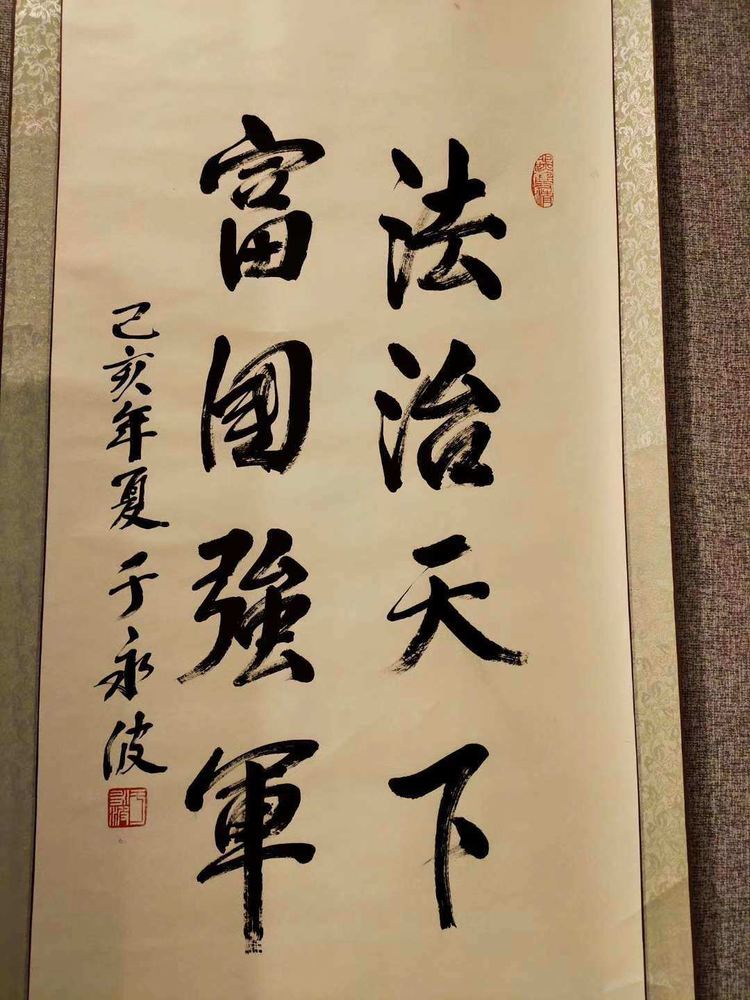 法治天下
富国強軍
己亥年夏于永波